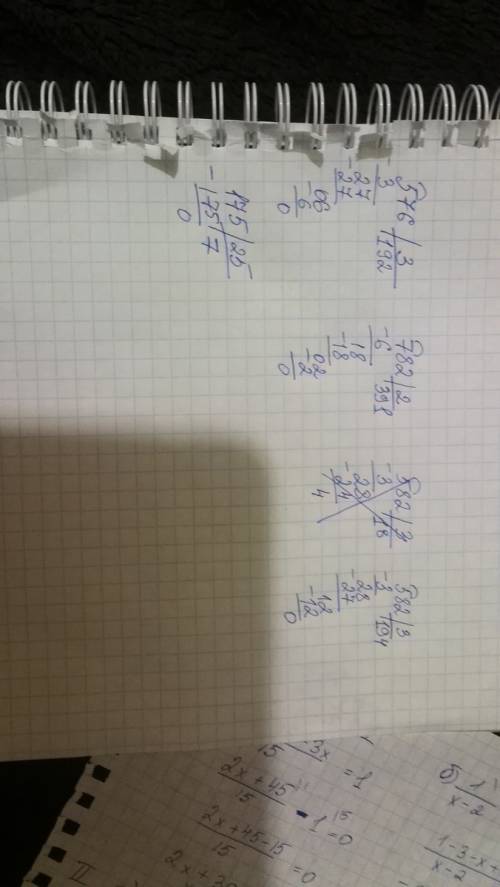 576 | 3
-3 | 192
27
-27
06
-6
0
782 | 2
-6 | 391
18
-18
02
-2
0
582 | 3
-3 | 18
28
-24
4
582 | 3
-3 | 194
28
-27
12
-12
0
175 | 25
-175 | 7
0
б) 1
x-2
1-3-x
x-2
-3x
15 = 1
2x+45
15 - 1 = 0
2x+45-15
15 = 0
II